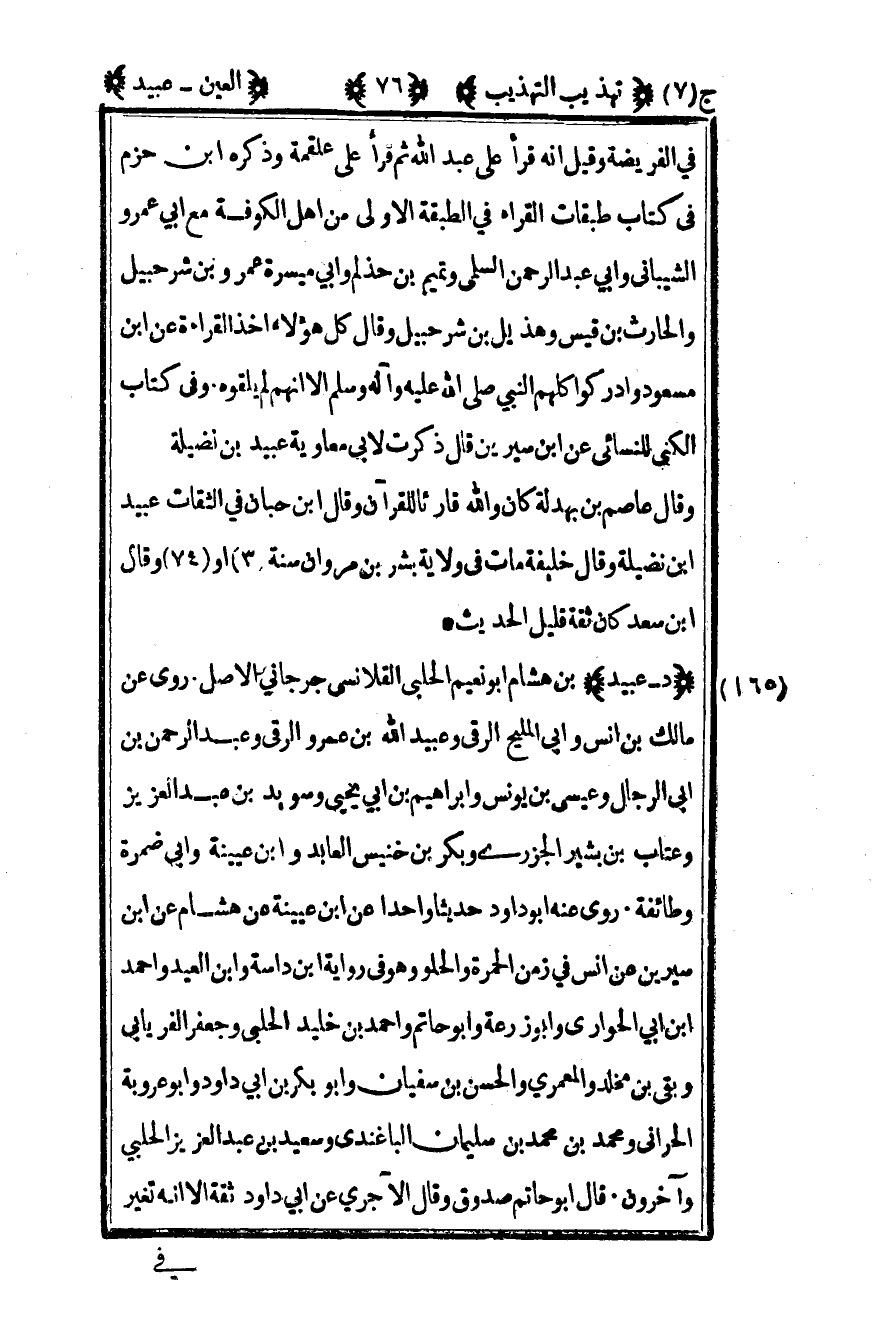 ج(٧) ﴿ تهذيب التهذيب ﴾ ﴿٧٦﴾ ﴿ العين - عبيد ﴾
في الفريضة وقيل انه قرأ على عبد الله ثم قرأ على علقمة وذكره ابن حزم
فى كتاب طبقات القراء في الطبقة الاولى من اهل الكوفة مع ابي عمرو
الشيبانى وابي عبد الرحمن السلمى وتميم بن حذلم وابي ميسرة عمرو بن شرحبيل
والحارث بن قيس وهذيل بن شرحبيل وقال كل هؤلاء اخذ القراءة عن ابن
مسعود وادركوا كلهم النبي صلى الله عليه وآله وسلم الا انهم لم يلقوه. وفى كتاب
الكنى للنسائى عن ابن سيرين قال ذكرت لابي معاوية عبيد بن نضيلة
وقال عاصم بن بهدلة كان والله قارئا للقرآن وقال ابن حبان في الثقات عبيد
ابن نضيلة وقال خليفة مات فى ولاية بشر بن مروان سنة ٣) او (٧٤) وقال
ابن سعد كان ثقة قليل الحديث ٠
(١٦٥) ﴿د - عبيد﴾ بن هشام ابو نعيم الحلبى القلانسى جرجاني الاصل. روى عن
مالك بن انس و ابي المليح الرقى وعبيد الله بن عمرو الرقى وعبد الرحمن بن
ابي الرجال وعيسى بن يونس وابراهيم بن ابي يحيى وسويد بن عبد العزيز
وعتاب بن بشير الجزرے وبكر بن خنيس العابد و ابن عيينة وابي ضمرة
وطائفة. روى عنه ابو داود حديثا واحدا عن ابن عيينة عن هشام عن ابن
سيرين عن انس في زمن الحمرة والحلو وهو فى رواية ابن داسة وابن العبد واحمد
ابن ابي الحوارى وابو زرعة وابو حاتم واحمد بن خليد الحلبى وجعفر الفريابي
وبقى بن مخلد والمعمري والحسن بن سفيان وابو بكر بن ابي داود وابو عروبة
الحرانى ومحمد بن محمد بن سليمان الباغندى وسعيد بن عبد العزيز الحلبي
وآخرون. قال ابو حاتم صدوق وقال الآجري عن ابي داود ثقة الا انه تغير
في